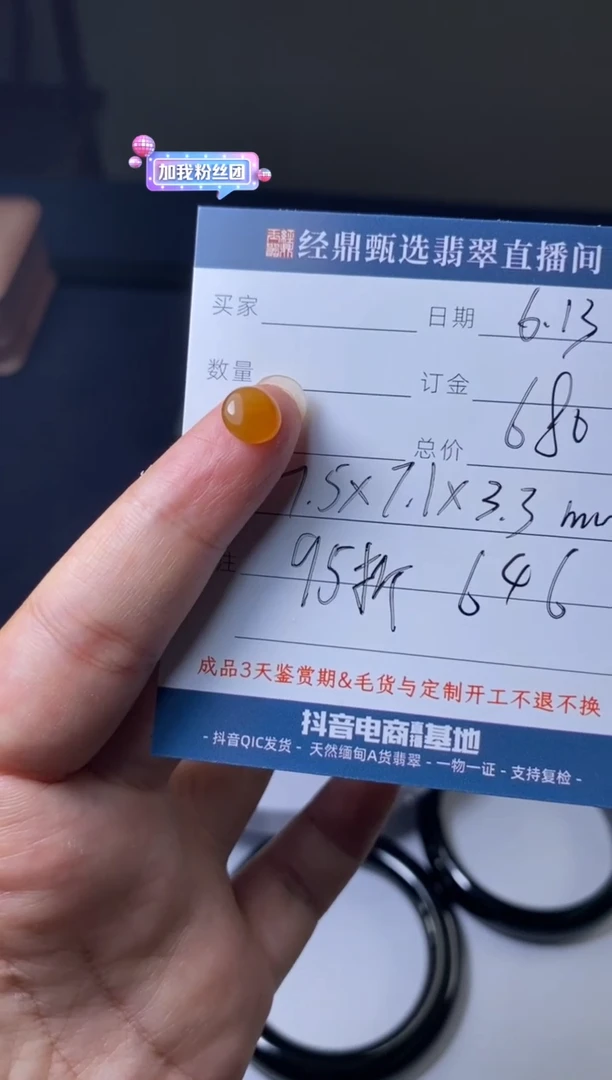 加我粉丝团
经鼎甄选翡翠直播间
买家 日期 6.13
数量 订金 680
总价
7.5×7.1×3.3 mm
注 95折 646
成品3天鉴赏期&毛货与定制开工不退不换
抖音电商直播基地
- 抖音QIC发货 - 天然缅甸A货翡翠 - 一物一证 - 支持复检 -